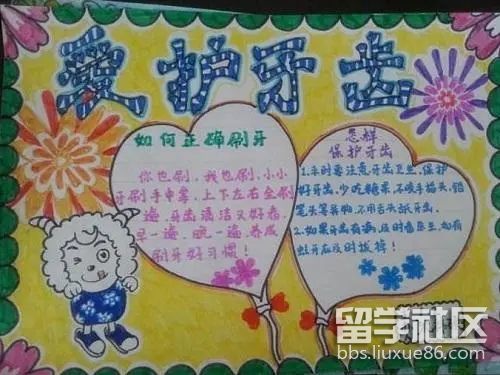 爱护牙齿
如何正确刷牙
你也刷,我也刷,小小
牙刷手中拿,上下左右全刷
遍,牙齿清洁又好看,
早一遍,晚一遍,养成
刷牙好习惯!
怎样
保护牙齿
1.平时要注意牙齿卫生,保护
好牙齿,少吃糖果,不咬手指头、铅
笔头等异物,不用舌头舐牙齿。
2.如果牙齿有病,及时看医生,如有
蛀牙应及时拔掉!
留学社区
bbs.liuxue86.com